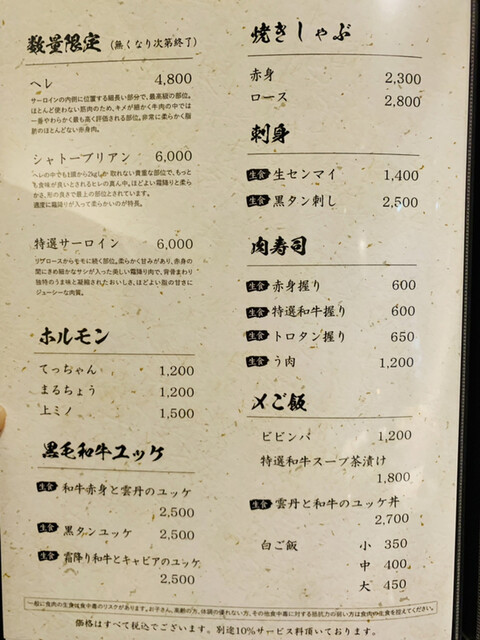 数量限定 (無くなり次第終了)
ヘレ 4,800
サーロインの内側に位置する細長い部分で、最高級の部位。
ほとんど使わない筋肉のため、キメが細かく牛肉の中では
一番やわらかく最も高く評価される部位。非常に柔らかく脂
肪のほとんどない赤身肉。
シャトーブリアン 6,000
ヘレの中でも1頭から2kgしか取れない貴重な部位で、もっと
も食味が良いとされるヒレの真ん中。ほどよい霜降りと柔ら
かさ、形の良さで最上の部位とされています。
適度に霜降りが入って柔らかいのが特長。
特選サーロイン 6,000
リブロースからももに続く部位。柔らかく甘みがあり、赤身の
間にきめ細かなサシが入った美しい霜降り肉で、背骨まわり
独特のうま味と凝縮されたおいしさ、ほどよい脂の甘さに
ジューシーな肉質。
ホルモン
てっちゃん 1,200
まるちょう 1,200
上ミノ 1,500
黒毛和牛ユッケ
生食 和牛赤身と雲丹のユッケ
2,500
生食 黒タンユッケ 2,500
生食 霜降り和牛とキャビアのユッケ
2,500
焼きしゃぶ
赤身 2,300
ロース 2,800
刺身
生食 生センマイ 1,400
生食 黒タン刺し 2,500
肉寿司
生食 赤身握り 600
生食 特選和牛握り 600
生食 トロタン握り 650
生食 う肉 1,200
〆ご飯
ビビンバ 1,200
特選和牛スープ茶漬け
1,800
生食 雲丹と和牛のユッケ丼
2,700
白ご飯 小 350
中 400
大 450
一般に食肉の生食は食中毒のリスクがあります。お子さん、高齢の方、体調の優れない方、その他食中毒に対する抵抗力の弱い方は食肉の生食を控えてください。
価格はすべて税込でございます。別途10%サービス料頂いております。